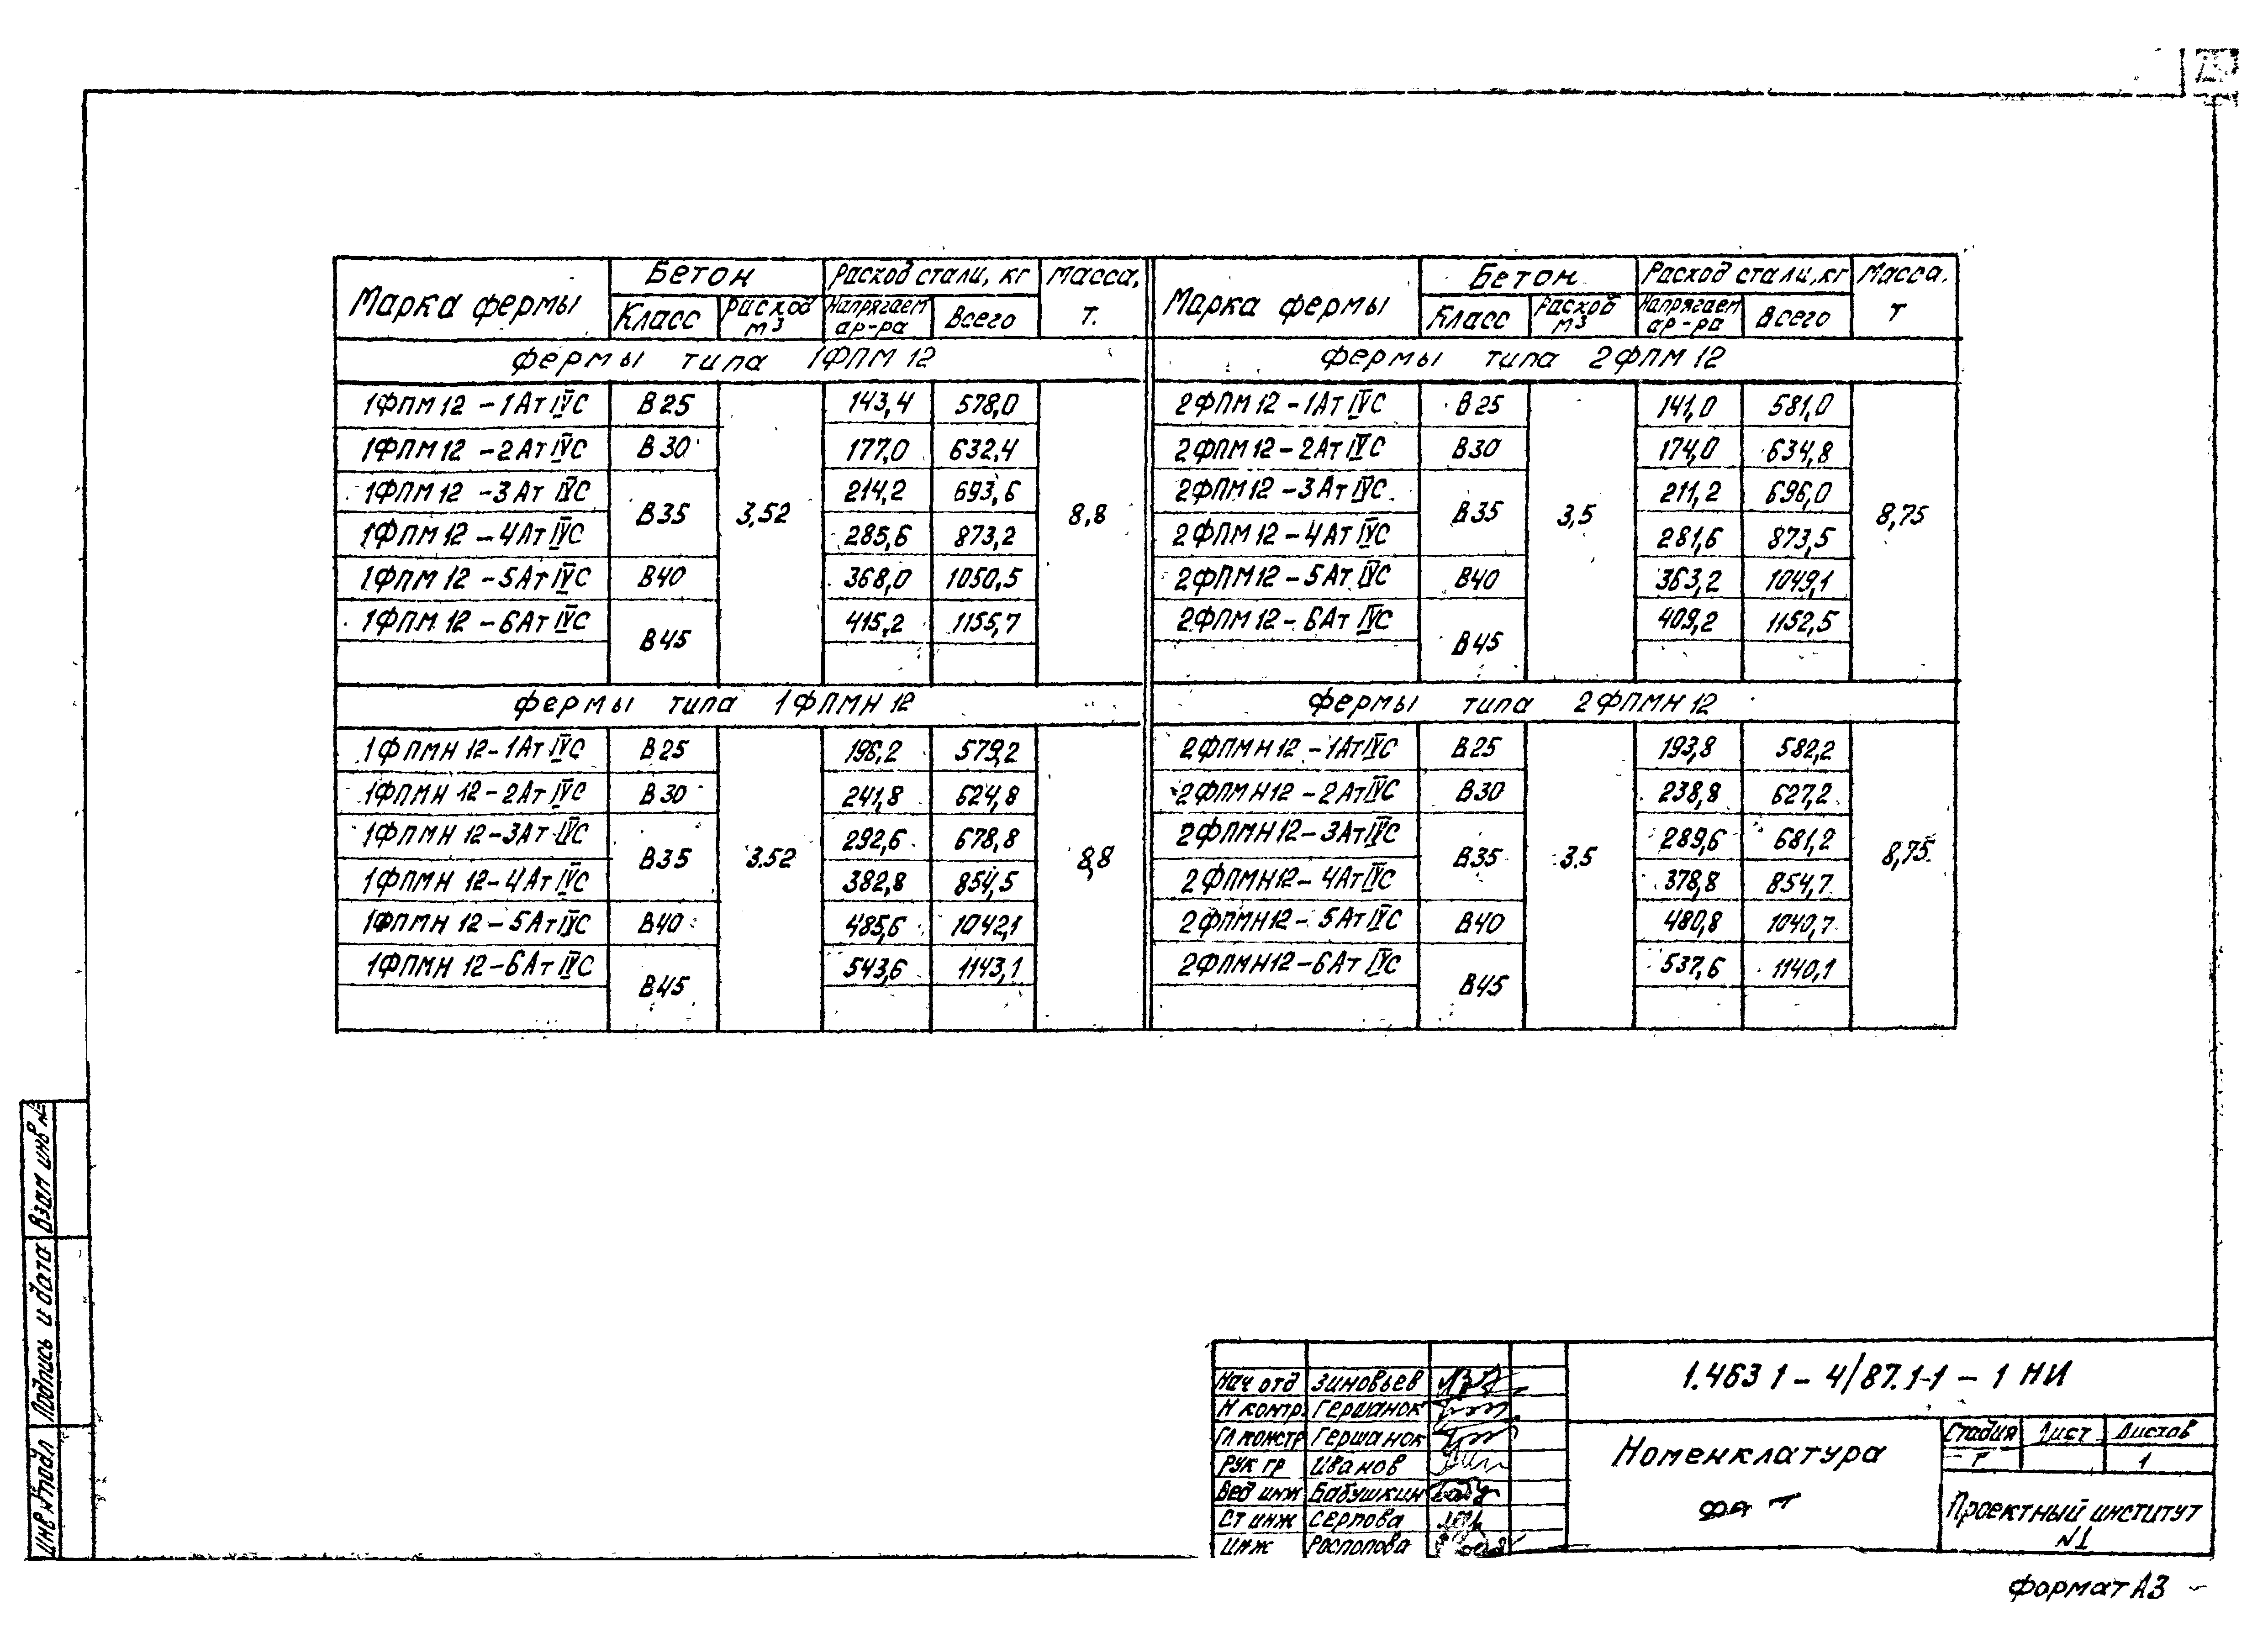 Марка фермы Бетон Расход стали, кг Масса, т. Марка фермы Бетон Расход стали, кг Масса, т
Класс Расход м3 Напрягаем ар-ра Всего Класс Расход м3 Напрягаем ар-ра Всего
фермы типа 1ФПМ 12 фермы типа 2ФПМ 12
1ФПМ 12 - 1АтIVС В25 143,4 578,0 2ФПМ 12 - 1АтIVС В25 141,0 581,0
1ФПМ 12 - 2АтIVС В30 177,0 632,4 2ФПМ 12 - 2АтIVС В30 174,0 634,8
1ФПМ 12 - 3АтIVС В35 3,52 214,2 693,6 8,8 2ФПМ 12 - 3АтIVС В35 3,5 211,2 696,0 8,75
1ФПМ 12 - 4АтIVС 285,6 873,2 2ФПМ 12 - 4АтIVС 281,6 873,5
1ФПМ 12 - 5АтIVС В40 368,0 1050,5 2ФПМ 12 - 5АтIVС В40 363,2 1049,1
1ФПМ 12 - 6АтIVС В45 415,2 1155,7 2ФПМ 12 - 6АтIVС В45 409,2 1152,5
фермы типа 1ФПМН 12 фермы типа 2ФПМН 12
1ФПМН 12 - 1АтIVС В25 196,2 579,2 2ФПМН 12 - 1АтIVС В25 193,8 582,2
1ФПМН 12 - 2АтIVС В30 241,8 624,8 2ФПМН 12 - 2АтIVС В30 238,8 627,2
1ФПМН 12 - 3АтIVС В35 3.52 292,6 678,8 8,8 2ФПМН 12 - 3АтIVС В35 3.5 289,6 681,2 8,75
1ФПМН 12 - 4АтIVС 382,8 854,5 2ФПМН 12 - 4АтIVС 378,8 854,7
1ФПМН 12 - 5АтIVС В40 485,6 1042,1 2ФПМН 12 - 5АтIVС В40 480,8 1040,7
1ФПМН 12 - 6АтIVС В45 543,6 1143,1 2ФПМН 12 - 6АтIVС В45 537,6 1140,1
Взам инв №
Подпись и дата
инв № подл
1.463 1 - 4/87.1-1 - 1 НИ
Нач отд Зиновьев
Н контр. Гершанок
Гл констр Гершанок
Рук гр Иванов
Вед инж Бабушкин
Ст инж Серпова
инж Распопова
Номенклатура
Стадия Лист Листов
Р 1
Проектный институт
N1
формат А3